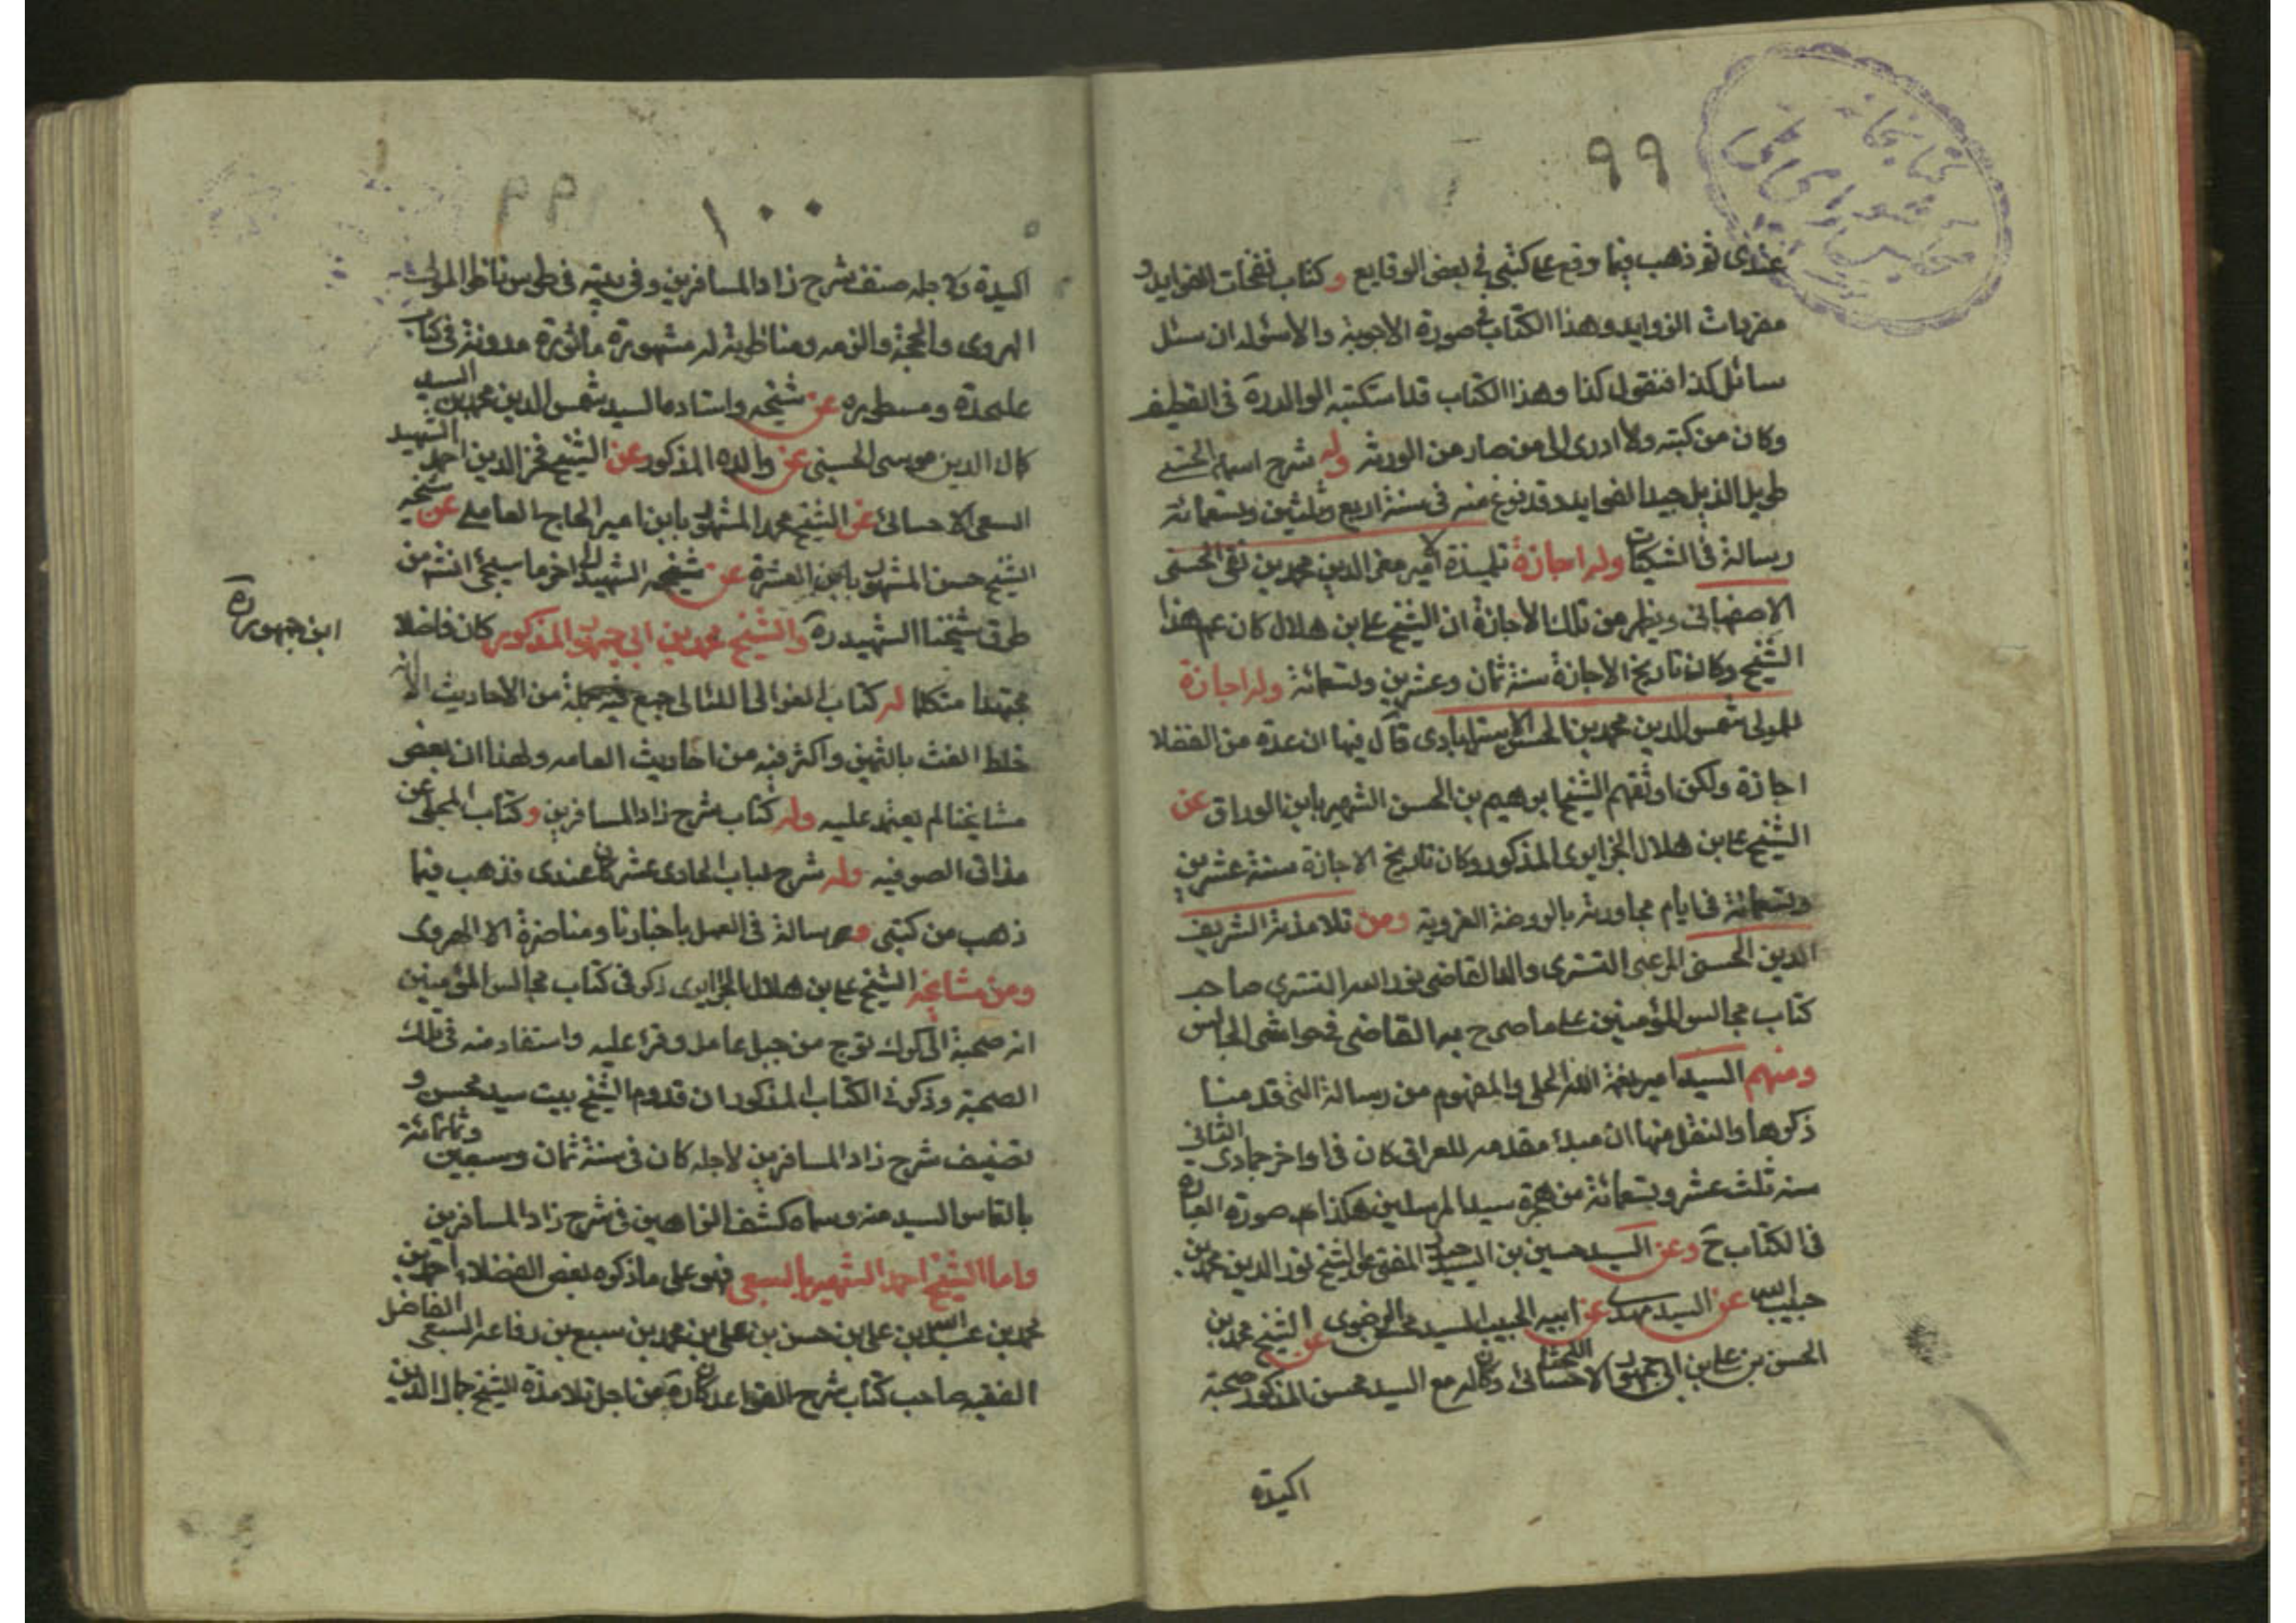 ٩٩
كتابخانه
مجلس شوراى ملى
عندى ثم ذهب فيما وقع على كتبى فى بعض الوقايع وكتاب نفحات الفوايد و
مفردات الزوايد وهذا الكتاب فى صورة الاجوبة والأسئولة ان سئل
سائل كذا فنقول كذا وهذا الكتاب قد استكتبه الوالد ره فى القطيف
وكان من كتبه ولا ادرى الى من صار من الورثه وله شرح اسماء الحسنى
طويل الذيل جيد الفوايد وقد فرغ منه فى سنة اربع وثلثين وتسعمائة
رسالة فى الشكيات وله اجازة تلميذه امير معز الدين محمد بن تقى الحسنى
الاصفهانى ويظهر من تلك الأجازة ان الشيخ على بن هلال كان عم هذا
الشيخ وكان تاريخ الاجازة سنة ثمان وعشرين وتسعمائة وله اجازة
للمولى شمس الدين محمد بن الحسن الاسترابادى قال فيها ان عدة من الفضلا
اجازة ولكن اوثقهم الشيخ ابرهيم بن الحسن الشهير بابن الوراق عن
الشيخ على بن هلال الجزايرى المذكور وكان تاريخ الاجازة سنة عشرين
وتسعمائة فى ايام مجاورته بالروضة الغروية ومن تلامذته الشريف
الدين الحسنى المرعشى التسترى والد القاضى نور الله التسترى صاحب
كتاب مجالس المؤمنين على ما صرح به القاضى فى حواشى المجالس
ومنهم السيد امير نعمة الله الحلى والمفهوم من رسالة التى قد منا
ذكرها والنقل منها ان مبدء مقدمه للعراق كان فى اواخر جمادى الثانى
سنه ثلث عشر وتسعمائة من هجرة سيد المرسلين هكذا صورة العبارة
فى الكتاب ح وعن السيد حسين بن السيد حيدر المفتى عن الشيخ نور الدين محمد بن
حبيب الله عن السيد مهدى عن ابيه الحبيب السيد محسن الرضوى عن الشيخ محمد بن
الحسن بن على بن ابى جمهور اللحساى الاحسائى وكان له مع السيد محسن المذكور صحبة
اكيدة
١٠٠
اكيدة ولاجله صنف شرح زاد المسافرين وفى بيته فى طوس ناظر المولى
الهروى والحجة والزمه ومناظرته له مشهورة ماثورة مدونة فى كتاب
عليحدة ومسطوره عن شيخه واستاده السيد شمس الدين محمد بن السيد
كمال الدين موسى الحسينى عن والده المذكور عن الشيخ فخر الدين احمد الشهيد
السبعى الاحسائى عن الشيخ محمد المشهور بابن امير الحاج العاملى عن شيخه
الشيخ حسن المشهور بابن العشرة عن شيخه الشهيد الى اخر ما سيجئ انشم من
طرق شيخنا الشهيد ره والشيخ محمد بن ابى جمهور المذكور كان فاضلا
مجتهدا متكلما له كتاب العوالى اللئالى جمع فيه جملة من الأحاديث الا انه
خلط الغث بالثمين واكثر فيه من احاديث العامه ولهذا ان بعض
مشايخنا لم يعتمد عليه وله كتاب شرح زاد المسافرين وكتاب المجلى عن
مذاق الصوفيه وله شرح لباب الحادى عشر كان عندى فذهب فيما
ذهب من كتبى وله رسالة فى العمل باخبارنا ومناضرة الا الهروى
ومن مشايخه الشيخ على بن هلال الجزايرى ذكر فى كتاب مجالس المؤمنين
انه صحبة الى كرك نوح من جبل عامل وقرء عليه واستفاد منه فى تلك
الصحبة وذكر فى الكتاب المذكور ان قدوم الشيخ بيت سيد محسن و
تصنيف شرح زاد المسافرين لاجله كان فى سنة ثمان وسبعين وثمانمائة
بالتماس السيد منه وسماه كشف البراهين فى شرح زاد المسافرين
واما الشيخ احمد الشهير بالسبعى فهو على ما ذكره بعض الفضلاء احمد بن
محمد بن عبدالله بن على بن حسن بن على بن محمد بن سبع بن رفاعه السبعى الفاضل
الفقيه صاحب كتاب شرح القواعد كان ره من اجل تلامذة الشيخ جمال الدين
ابن جمهور ره